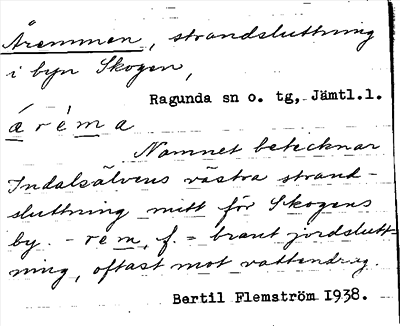 Åremmen, strandsluttning
i byn Skogen,
Ragunda sn o. tg, Jämtl.l.
á r é m a
Namnet betecknar
Indalsälvens västra strand-
sluttning mitt för Skogens
by. - rem, f. = brant jordslutt-
ning, oftast mot vattendrag.
Bertil Flemström 1938.